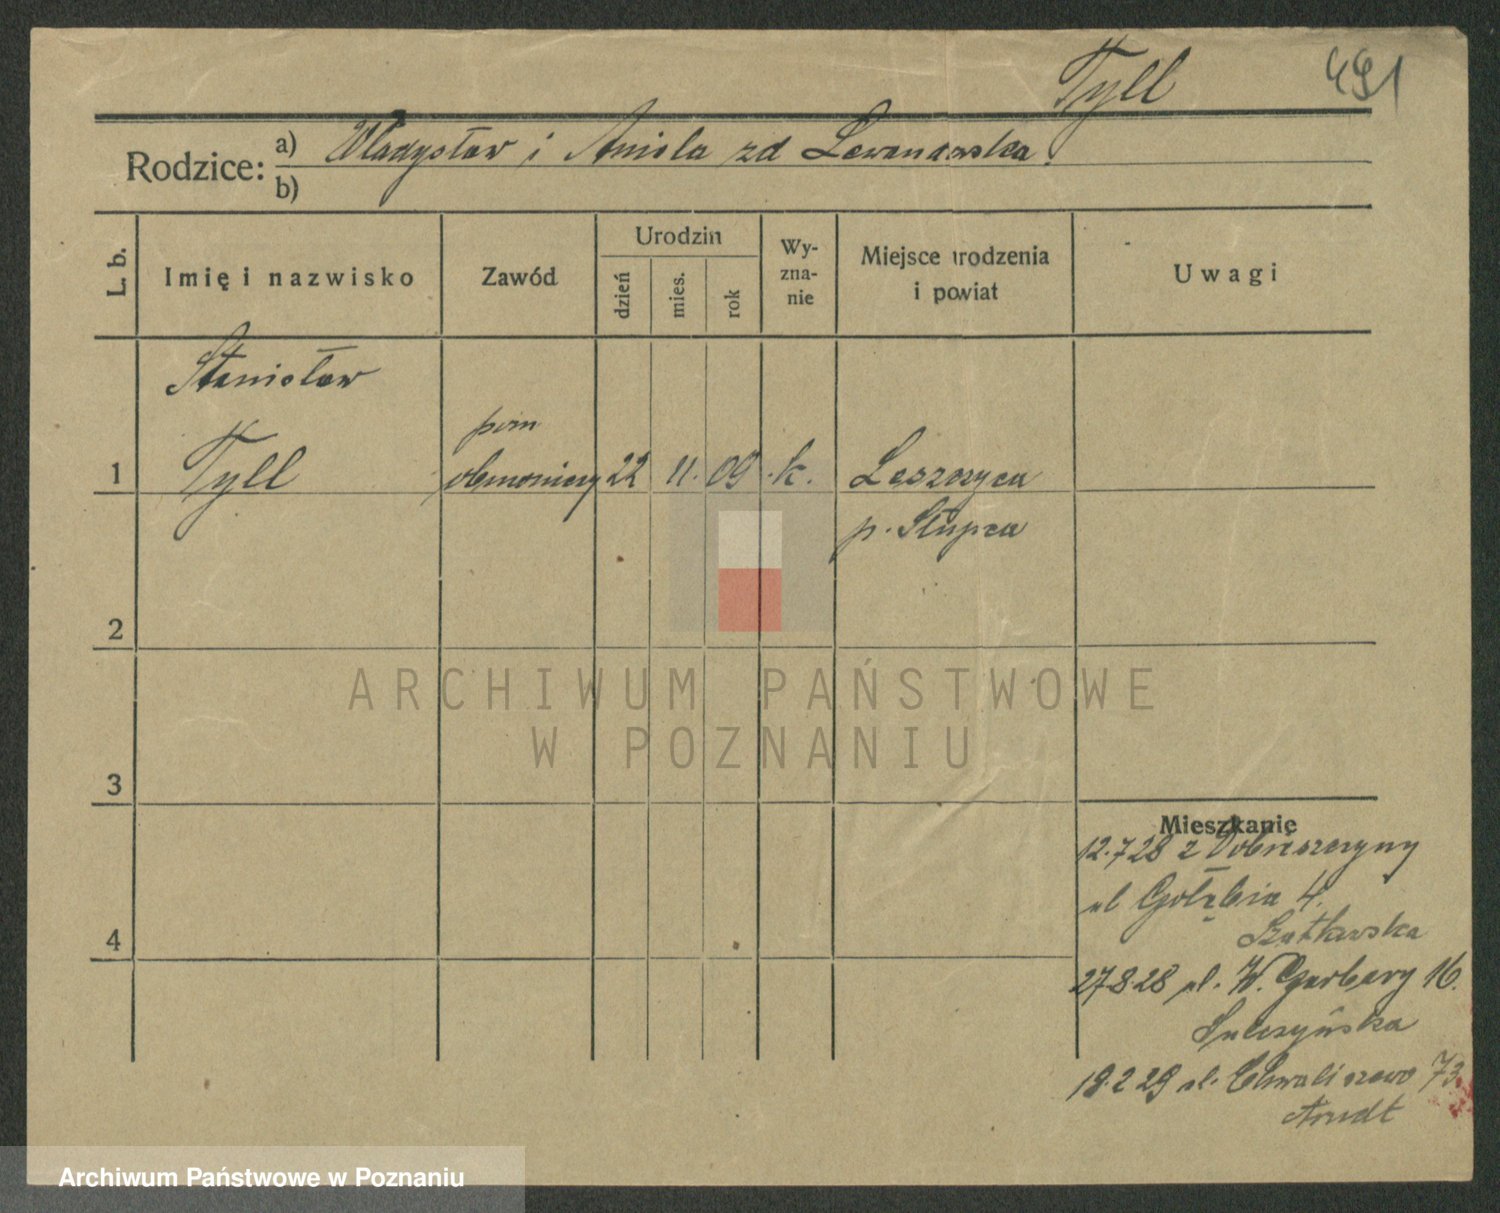 Tyll
491
Rodzice:
a) Władysław i Aniela zd Lewandowska.
b)
L. b.
Imię i nazwisko
Zawód
Urodzin
dzień
mies.
rok
Wy-
zna-
nie
Miejsce urodzenia
i powiat
Uwagi
Stanisław
pom
1 Tyll 22 11. 09 k.
p. Słupca
2
ARCHIWUM PAŃSTWOWE
W POZNANIU
3
Mieszkanie
12.7 28 z
ul Gołębia 4.
27 8 28 ul. W. Garbary 16.
19.2 29 ul. Chwaliszewo 73.
Arndt
4
Archiwum Państwowe w Poznaniu